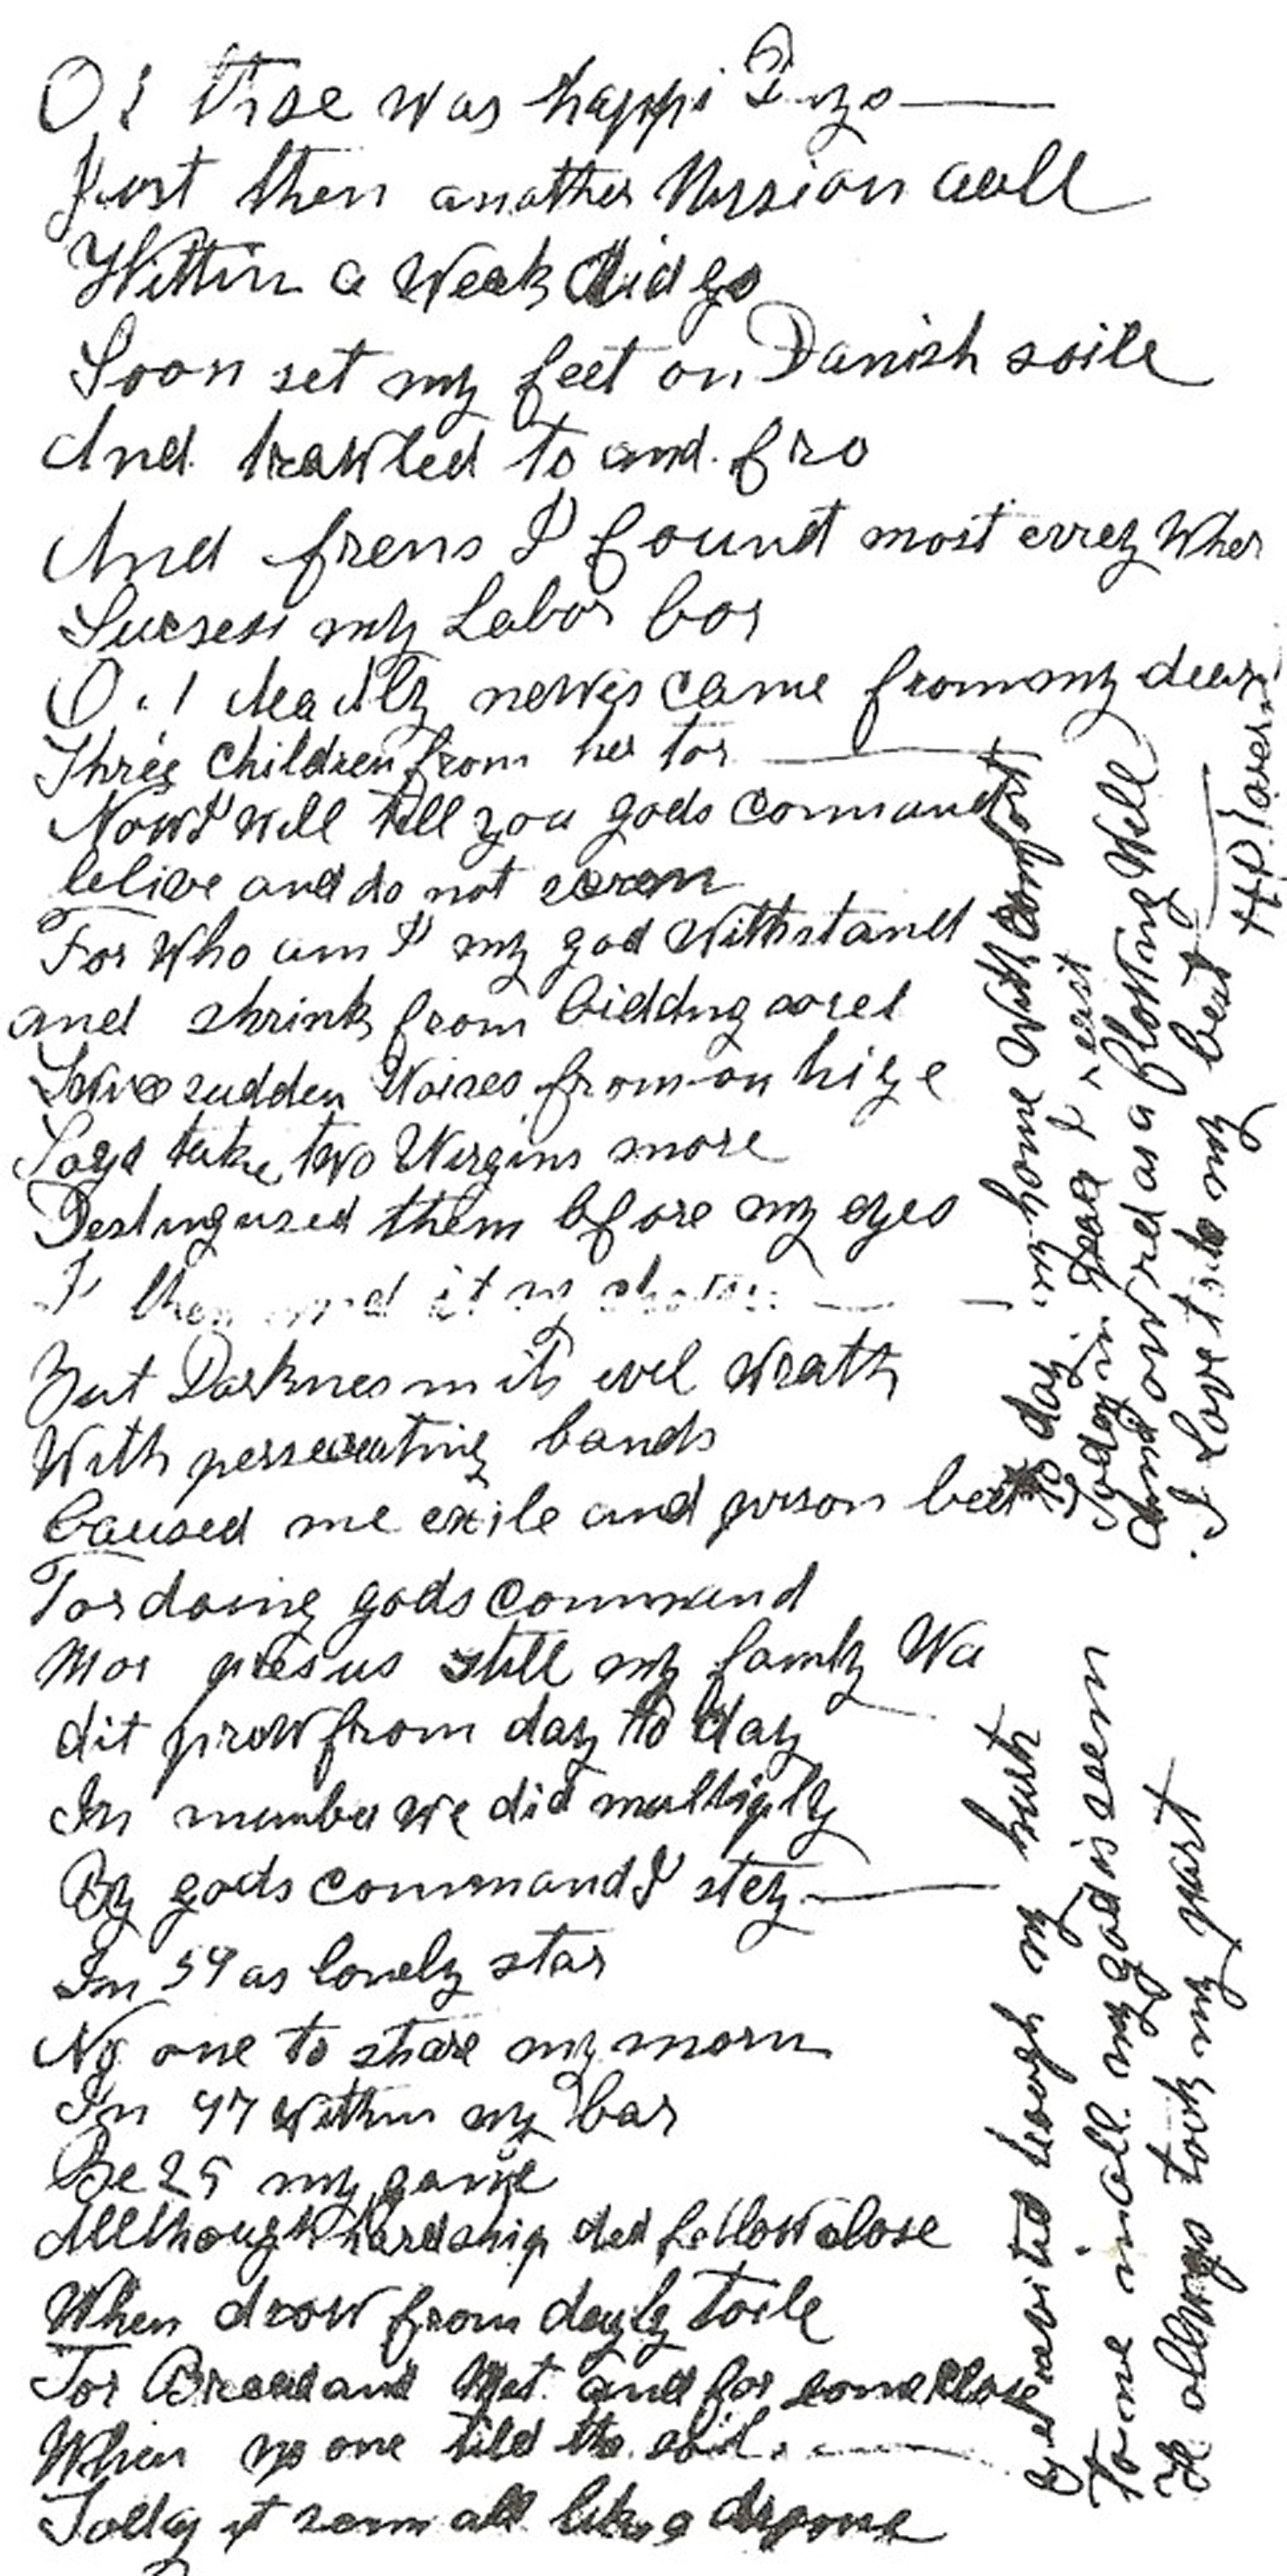 O! thse was happi
Just then another Mission call
Within a Week did go
Soon set my feet on Danish soile
And trawled to and fro
And frens I found most errey Wher
Sucsess my Labor bor
O.! deadly newes came from my dear
Three children from her tor
Now I will tell you gods command
belive and do not
For Who am I my god Withstand
and shrink from
sudden Woises from on hige
Says take two Wirgins more
Destingused them bfore my eyes
I then it
But Darknes in its evel Wrath
With persecuting bands
Caused me exile and prison
For doing gods command
Mor still my family Wa
dit grow from day to day
In number we did multiply
By gods command I stey
In 59 as lonely star
No one to share my morn
In 97 Within my bar
Be 25 my game
Allthough hardship ded follow close
When drow from dayly toile
For Bread and Met and for some Close
When no one tild the soil.
Today it seem all like a
my
To me in all my god is seen
He allways took my part
To day my home With comfort
Today in
And as a flowing Well
I Love to my